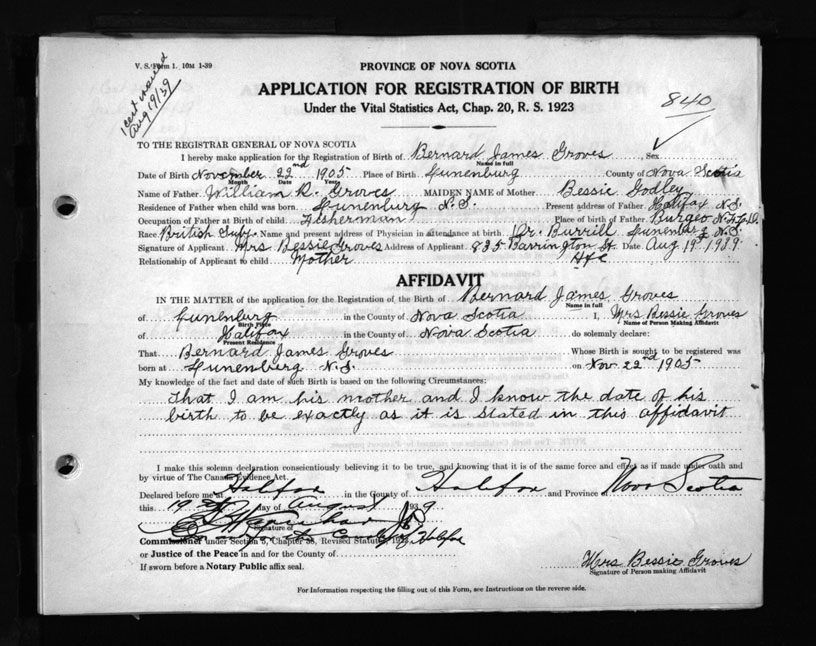 V. S. Form 1. 10M 1-39
1 cert issued
Aug 19/39
PROVINCE OF NOVA SCOTIA
APPLICATION FOR REGISTRATION OF BIRTH
Under the Vital Statistics Act, Chap. 20, R. S. 1923
840
TO THE REGISTRAR GENERAL OF NOVA SCOTIA
I hereby make application for the Registration of Birth of Bernard James Groves, Sex
Name in full
Date of Birth November 22nd 1905 Place of Birth Lunenburg County of Nova Scotia
Month Date Year
Name of Father William R. Groves MAIDEN NAME of Mother Bessie Godley
Residence of Father when child was born. Lunenburg N.S. Present address of Father Halifax N.S.
Occupation of Father at Birth of child. Fisherman Place of birth of Father Burgeo Nfld.
Race British Subj. Name and present address of Physician in attendance at birth. Dr. Burrill Lunenburg N.S.
Signature of Applicant. Mrs Bessie Groves Address of Applicant. 835 Barrington St. Date. Aug 19th 1939
Relationship of Applicant to child Mother Hfx
AFFIDAVIT
IN THE MATTER of the application for the Registration of the Birth of Bernard James Groves
Name in full
of Lunenburg in the County of Nova Scotia I, Mrs Bessie Groves
Birth Place Name of Person Making Affidavit
of Halifax in the County of Nova Scotia do solemnly declare:
Present Residence
That Bernard James Groves Whose Birth is sought to be registered was
born at Lunenburg N.S. on Nov 22nd 1905
My knowledge of the fact and date of such Birth is based on the following Circumstances:
That I am his mother and I know the date of his
birth to be exactly as it is stated in this affidavit
I make this solemn declaration conscientiously believing it to be true, and knowing that it is of the same force and effect as if made under oath and
by virtue of The Canada Evidence Act.
Declared before me at Halifax in the County of Halifax and Province of Nova Scotia
this 19th day of August 1939
Signature of
Commissioner under Section 5, Chapter 38, Revised Statutes, 1923
for the County of Halifax
or Justice of the Peace in and for the County of
If sworn before a Notary Public affix seal.
Mrs Bessie Groves
Signature of Person making Affidavit
For Information respecting the filling out of this Form, see Instructions on the reverse side.